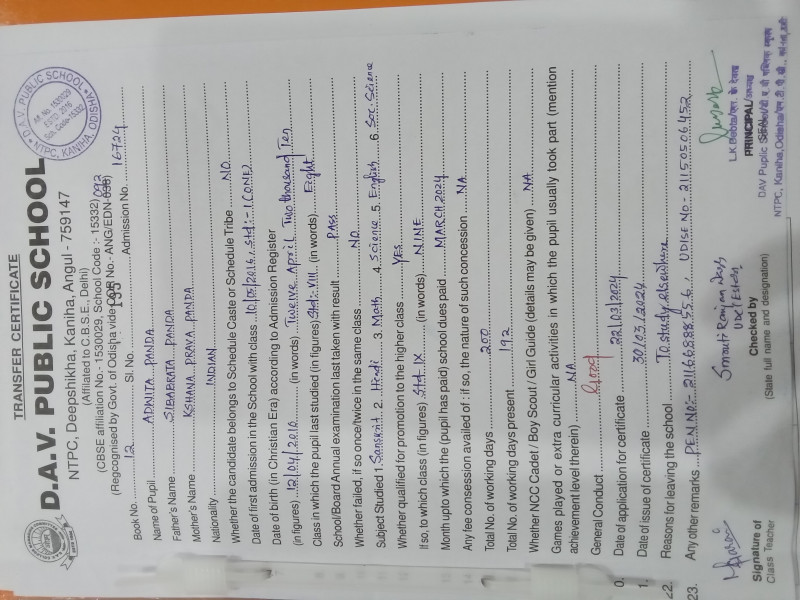 TRANSFER CERTIFICATE
D.A.V. PUBLIC SCHOOL
NTPC, Deepshikha, Kaniha, Angul - 759147
(Affiliated to C.B.S.E., Delhi)
(CBSE affiliation No.- 1530029, School Code :- 15332)
(Regcognised by Govt. of Odisha vide COR No.- ANG/EDN-038) 092
Book No. 12 Sl. No. 195 Admission No. 16724
D.A.V. PUBLIC SCHOOL
Aff. No. 1530029
ESTD 2016
Sch. Code-15332
NTPC, KANIHA, ODISHA
Name of Pupil ADWITA PANDA
Father's Name SIBABRATA PANDA
Mother's Name KSHANA PRAVA PANDA
Nationality INDIAN
Whether the candidate belongs to Schedule Caste or Schedule Tribe NO
Date of first admission in the School with class 10/05/2016, Std:- I (ONE)
Date of birth (in Christian Era) according to Admission Register
(in figures) 12/04/2010 (in words) Twelve April Two thousand Ten
Class in which the pupil last studied (in figures) Std:- VIII (in words) Eight
School/Board Annual examination last taken with result PASS
Whether failed, if so once/twice in the same class NO
Subject Studied 1. Sanskrit 2. Hindi 3. Math 4. Science 5. English 6. Soc. Science
Whether qualified for promotion to the higher class YES
If so, to which class (in figures) Std. IX (in words) NINE
Month upto which the (pupil has paid) school dues paid MARCH 2024
Any fee consession availed of : if so, the nature of such concession NA
Total No. of working days 200
Total No. of working days present 192
Whether NCC Cadet / Boy Scout / Girl Guide (details may be given) NA
Games played or extra curricular activities in which the pupil usually took part (mention
achievement level therein) NA
General Conduct Good
0. Date of application for certificate 22/03/2024
1. Date of issue of certificate 30/03/2024
22. Reasons for leaving the school To study elsewhere
23. Any other remarks PEN.NO:- 21166888556, UDISE NO - 21150506452
Signature of
Class Teacher
Smruti Ranjan Das
Checked by
(State full name and designation)
PRINCIPAL
SEAL
DAV Puplic School
NTPC, Kaniha, Odisha